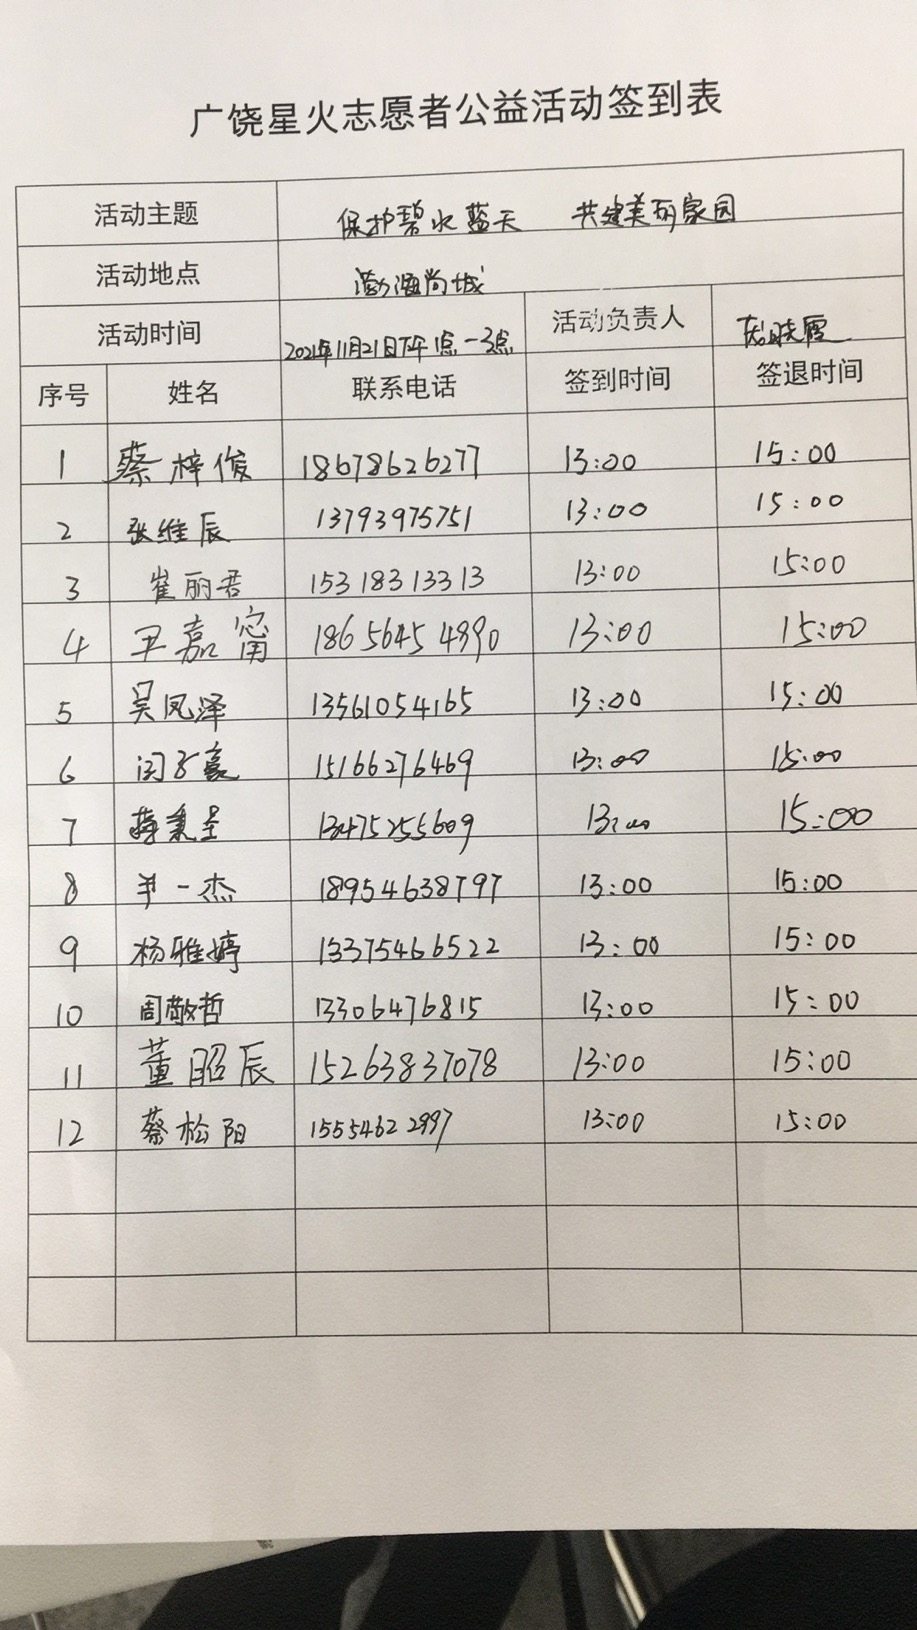 广饶星火志愿者公益活动签到表
活动主题 保护碧水蓝天 共建美丽家园
活动地点 渤海尚城
活动时间 2021年11月21日下午1点-3点 活动负责人 晓霞
序号 姓名 联系电话 签到时间 签退时间
1 蔡梓俊 18678626277 13:00 15:00
2 张维辰 13793975751 13:00 15:00
3 崔丽君 15318313313 13:00 15:00
4 王嘉甯 18656454990 13:00 15:00
5 吴凤泽 13561054165 13:00 15:00
6 闫子豪 15166276469 13:00 15:00
7 蒋秉圣 13475255609 13:00 15:00
8 尹一杰 18954638797 13:00 15:00
9 杨雅婷 13375466522 13:00 15:00
10 周敬哲 13306476815 13:00 15:00
11 董昭辰 15263837078 13:00 15:00
12 蔡松阳 15554622997 13:00 15:00